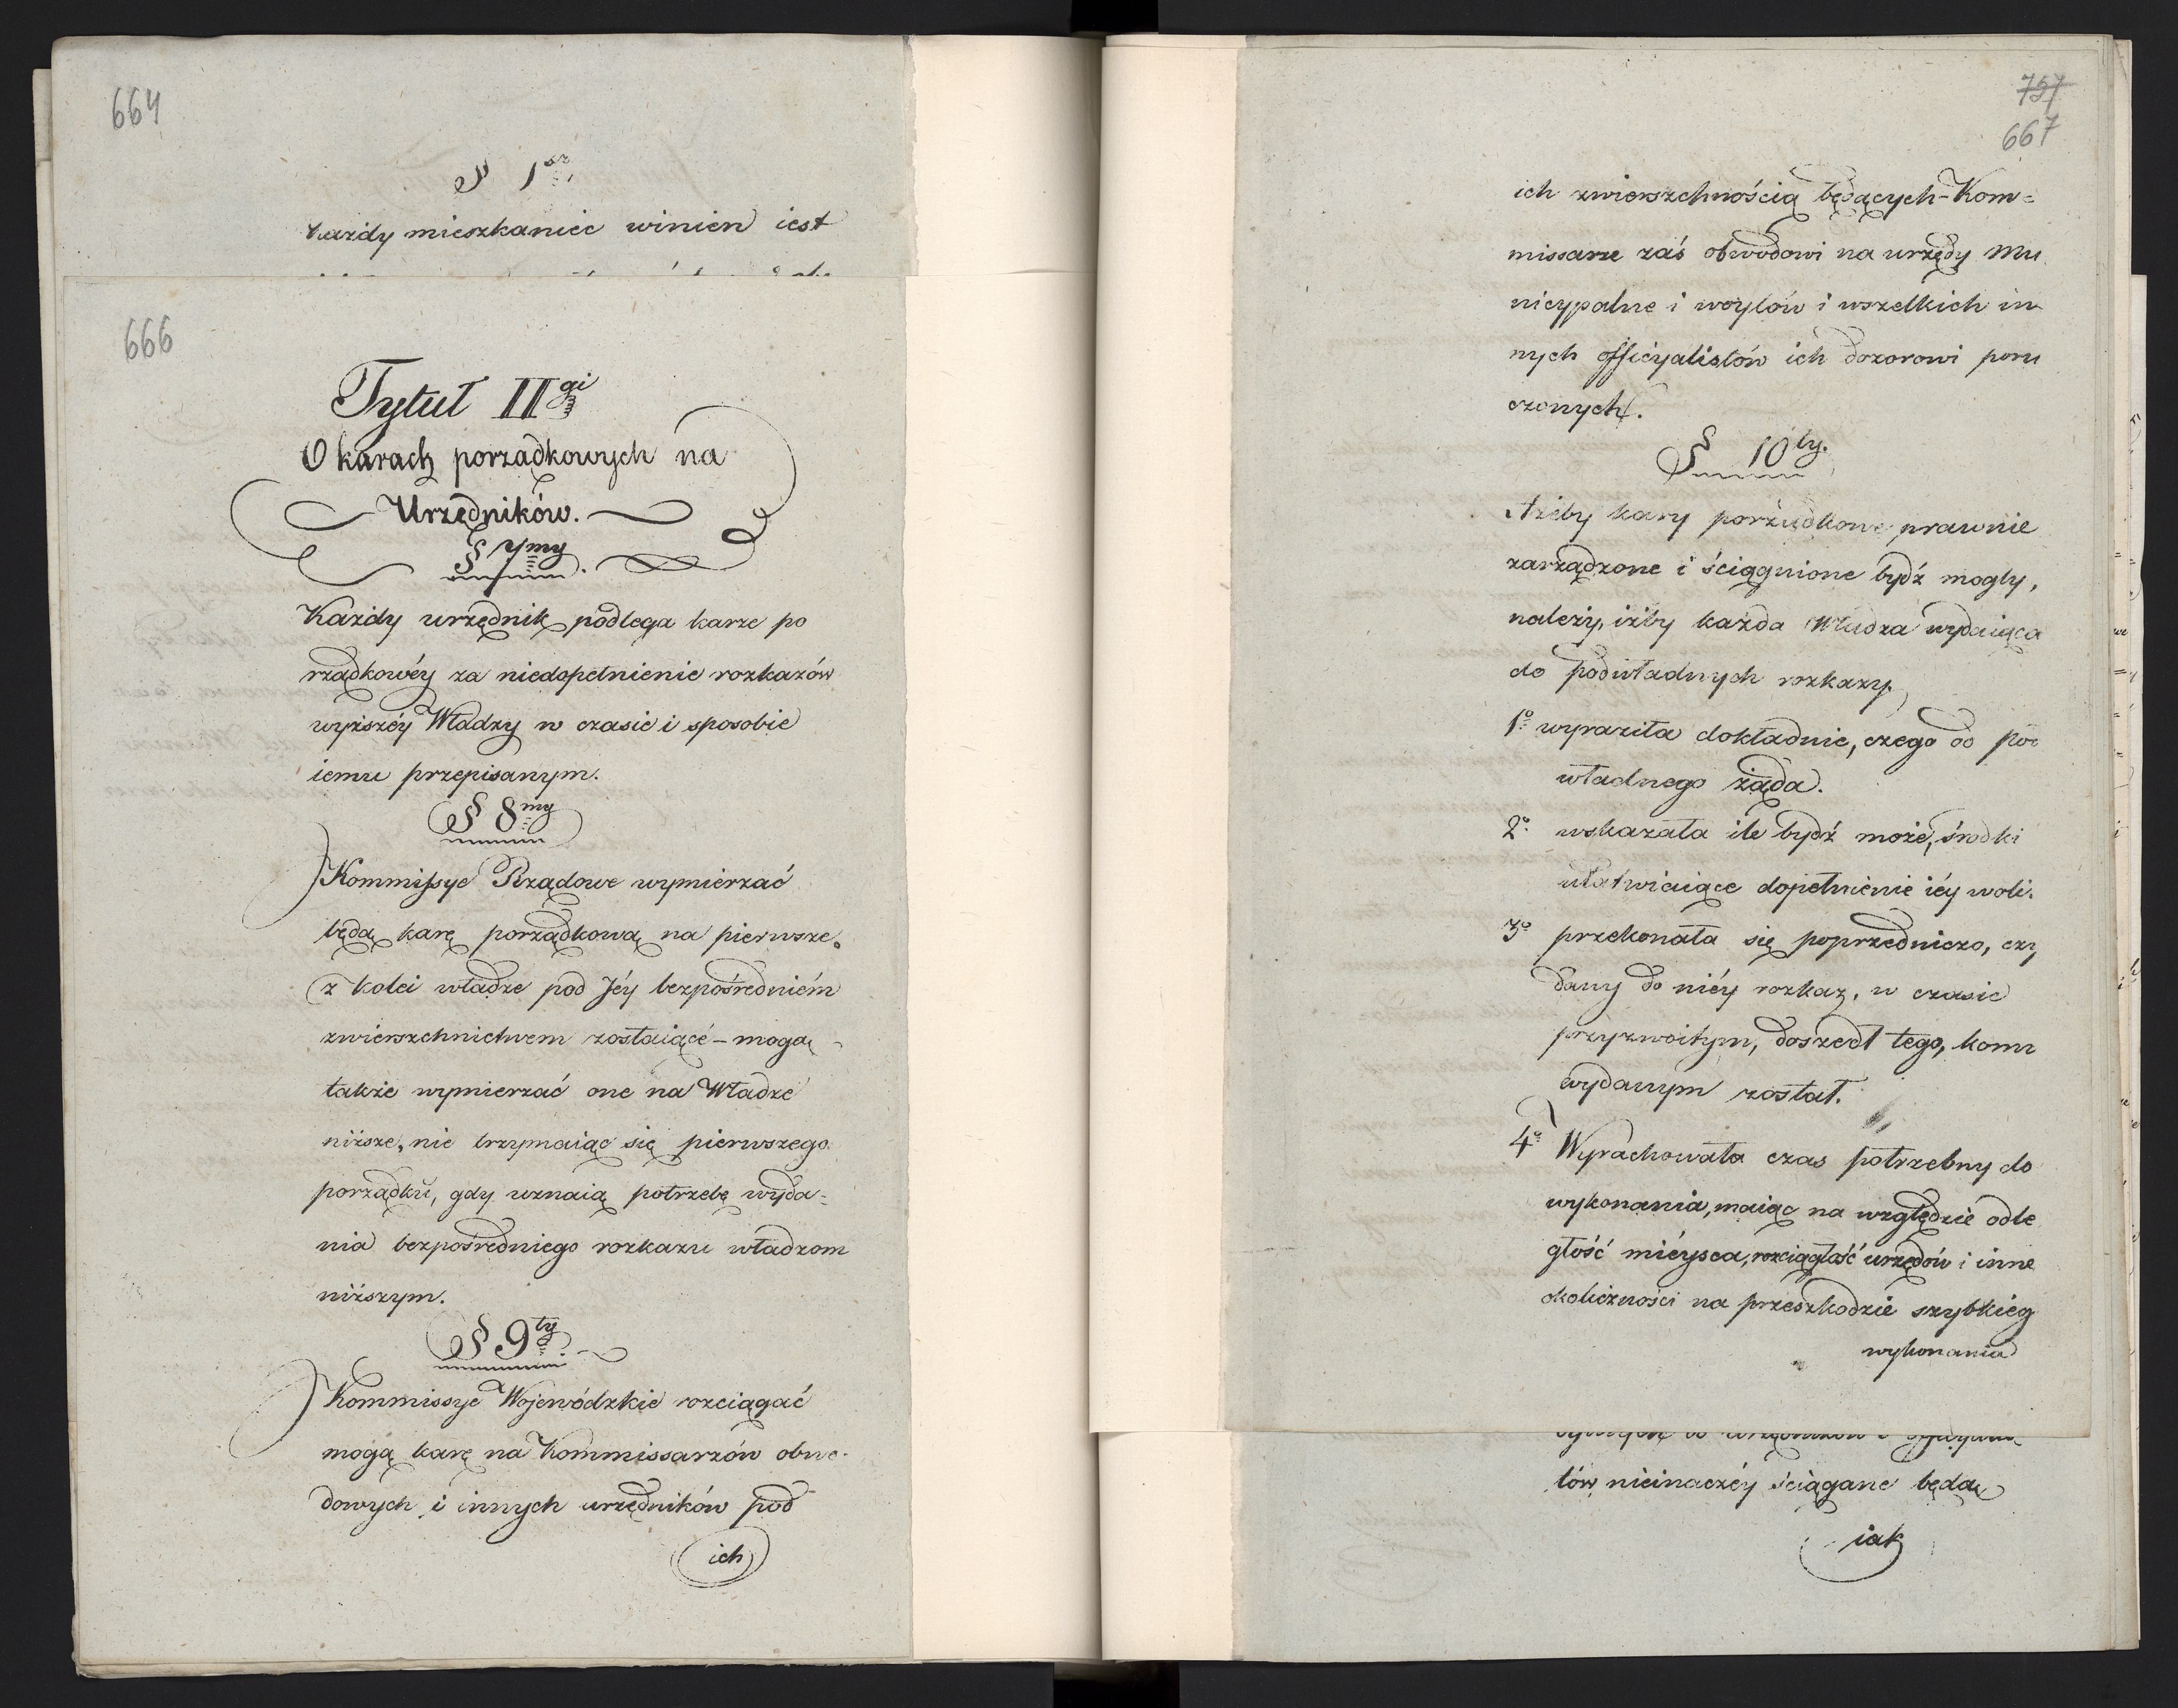 664
§ 1szy
każdy mieszkaniec winien iest
666
Tytuł IIgi
O karach porządkowych na
Urzędników.
§ 7my
Każdy urzędnik podlega karze po
rządkowéy za niedopełnienie rozkazów
wyższéy Władzy w czasie i sposobie
iemu przepisanym.
§ 8my
Kommissye Rządowe wymierzać
będą karę porządkową na pierwsze
z kolei władze pod Jéy bezpośredniém
zwierzchnictwem zostaiące – mogą
także wymierzać one na Władze
niższe, nie trzymaiąc się pierwszego
porządku, gdy uznaią potrzebę wyda-
nia bezpośredniego rozkazu władzom
niższym.
§ 9ty
Kommissye Wojewódzkie rozciągać
mogą karę na Kommissarzów obwo-
dowych i innych urzędników pod
ich
757
667
ich zwierzchnością będących – Kom=
missarze zaś obwodowi na urzędy Mu
nicypalne i woytów i wszelkich in
nych officyalistów ich dozorowi poru
czonych.
§ 10ty.
Ażeby kary porządkowe prawnie
zarządzone i ściągnione bydź mogły,
należy, iżby każda Władza wydaiąca
do podwładnych rozkazy,
1o wyraziła dokładnie, czego od pod
władnego żąda.
2o wskazała ile bydź może, środki
ułatwiaiące dopełnienie iéy woli.
3o przekonała się poprzedniczo, czy
dany do niéy rozkaz, w czasie
przyzwoitym, doszedł tego, komu
wydanym został.
4o Wyrachowała czas potrzebny do
wykonania, maiąc na względzie odle
głość miéysca, rozciągłość urzędów i inne
okoliczności na przeszkodzie szybkieg
wykonania
tów nieinaczéy ściągane będą
iak